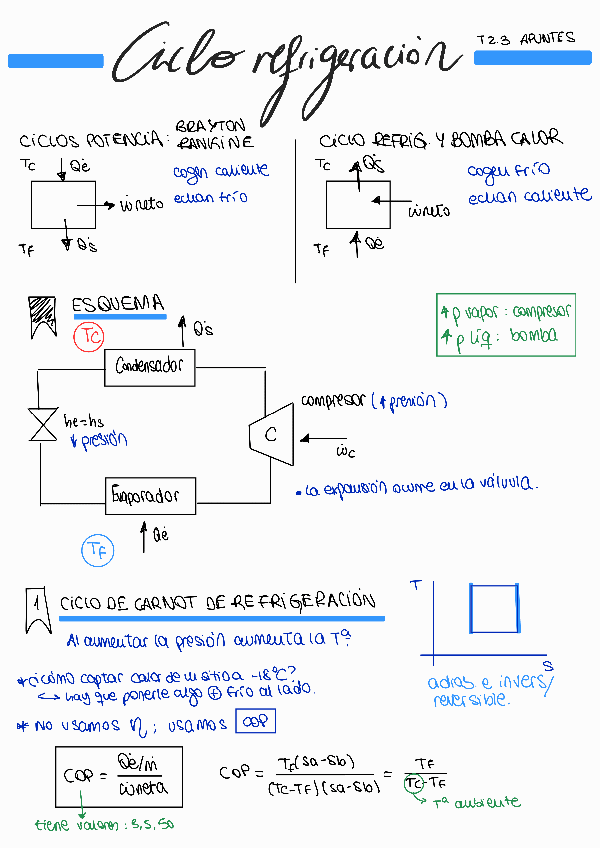 Ciclo refrigeración
T2.3 APUNTES
CICLOS POTENCIA: BRAYTON
RANKINE
TC
Q̇e
cogen caliente
echan frío
ẇneto
TF
Q̇s
CICLO REFRIG. Y BOMBA CALOR
TC
Q̇s
cogen frío
echan caliente
ẇneto
TF
Q̇e
ESQUEMA
TC
Q̇s
Condensador
↑ p vapor: compresor
↑ p líq: bomba
he=hs
↓ presión
compresor (↑ presión)
C
ẇc
• La expansión ocurre en la válvula.
Evaporador
TF
Q̇e
1 CICLO DE CARNOT DE REFRIGERACIÓN
Al aumentar la presión aumenta la Tª.
T
S
* ¿cómo captar calor de un sitio a -18°C?
↳ hay que ponerle algo ⊕ frío al lado.
adiab e intern/
reversible.
* NO USAMOS η; USAMOS COP
COP = Q̇e/ṁ / ẇneta
COP = TF(Sa-Sb) / (TC-TF)(Sa-Sb) = TF / TC-TF
→ Tª ambiente
tiene valores: 3, 5, 50